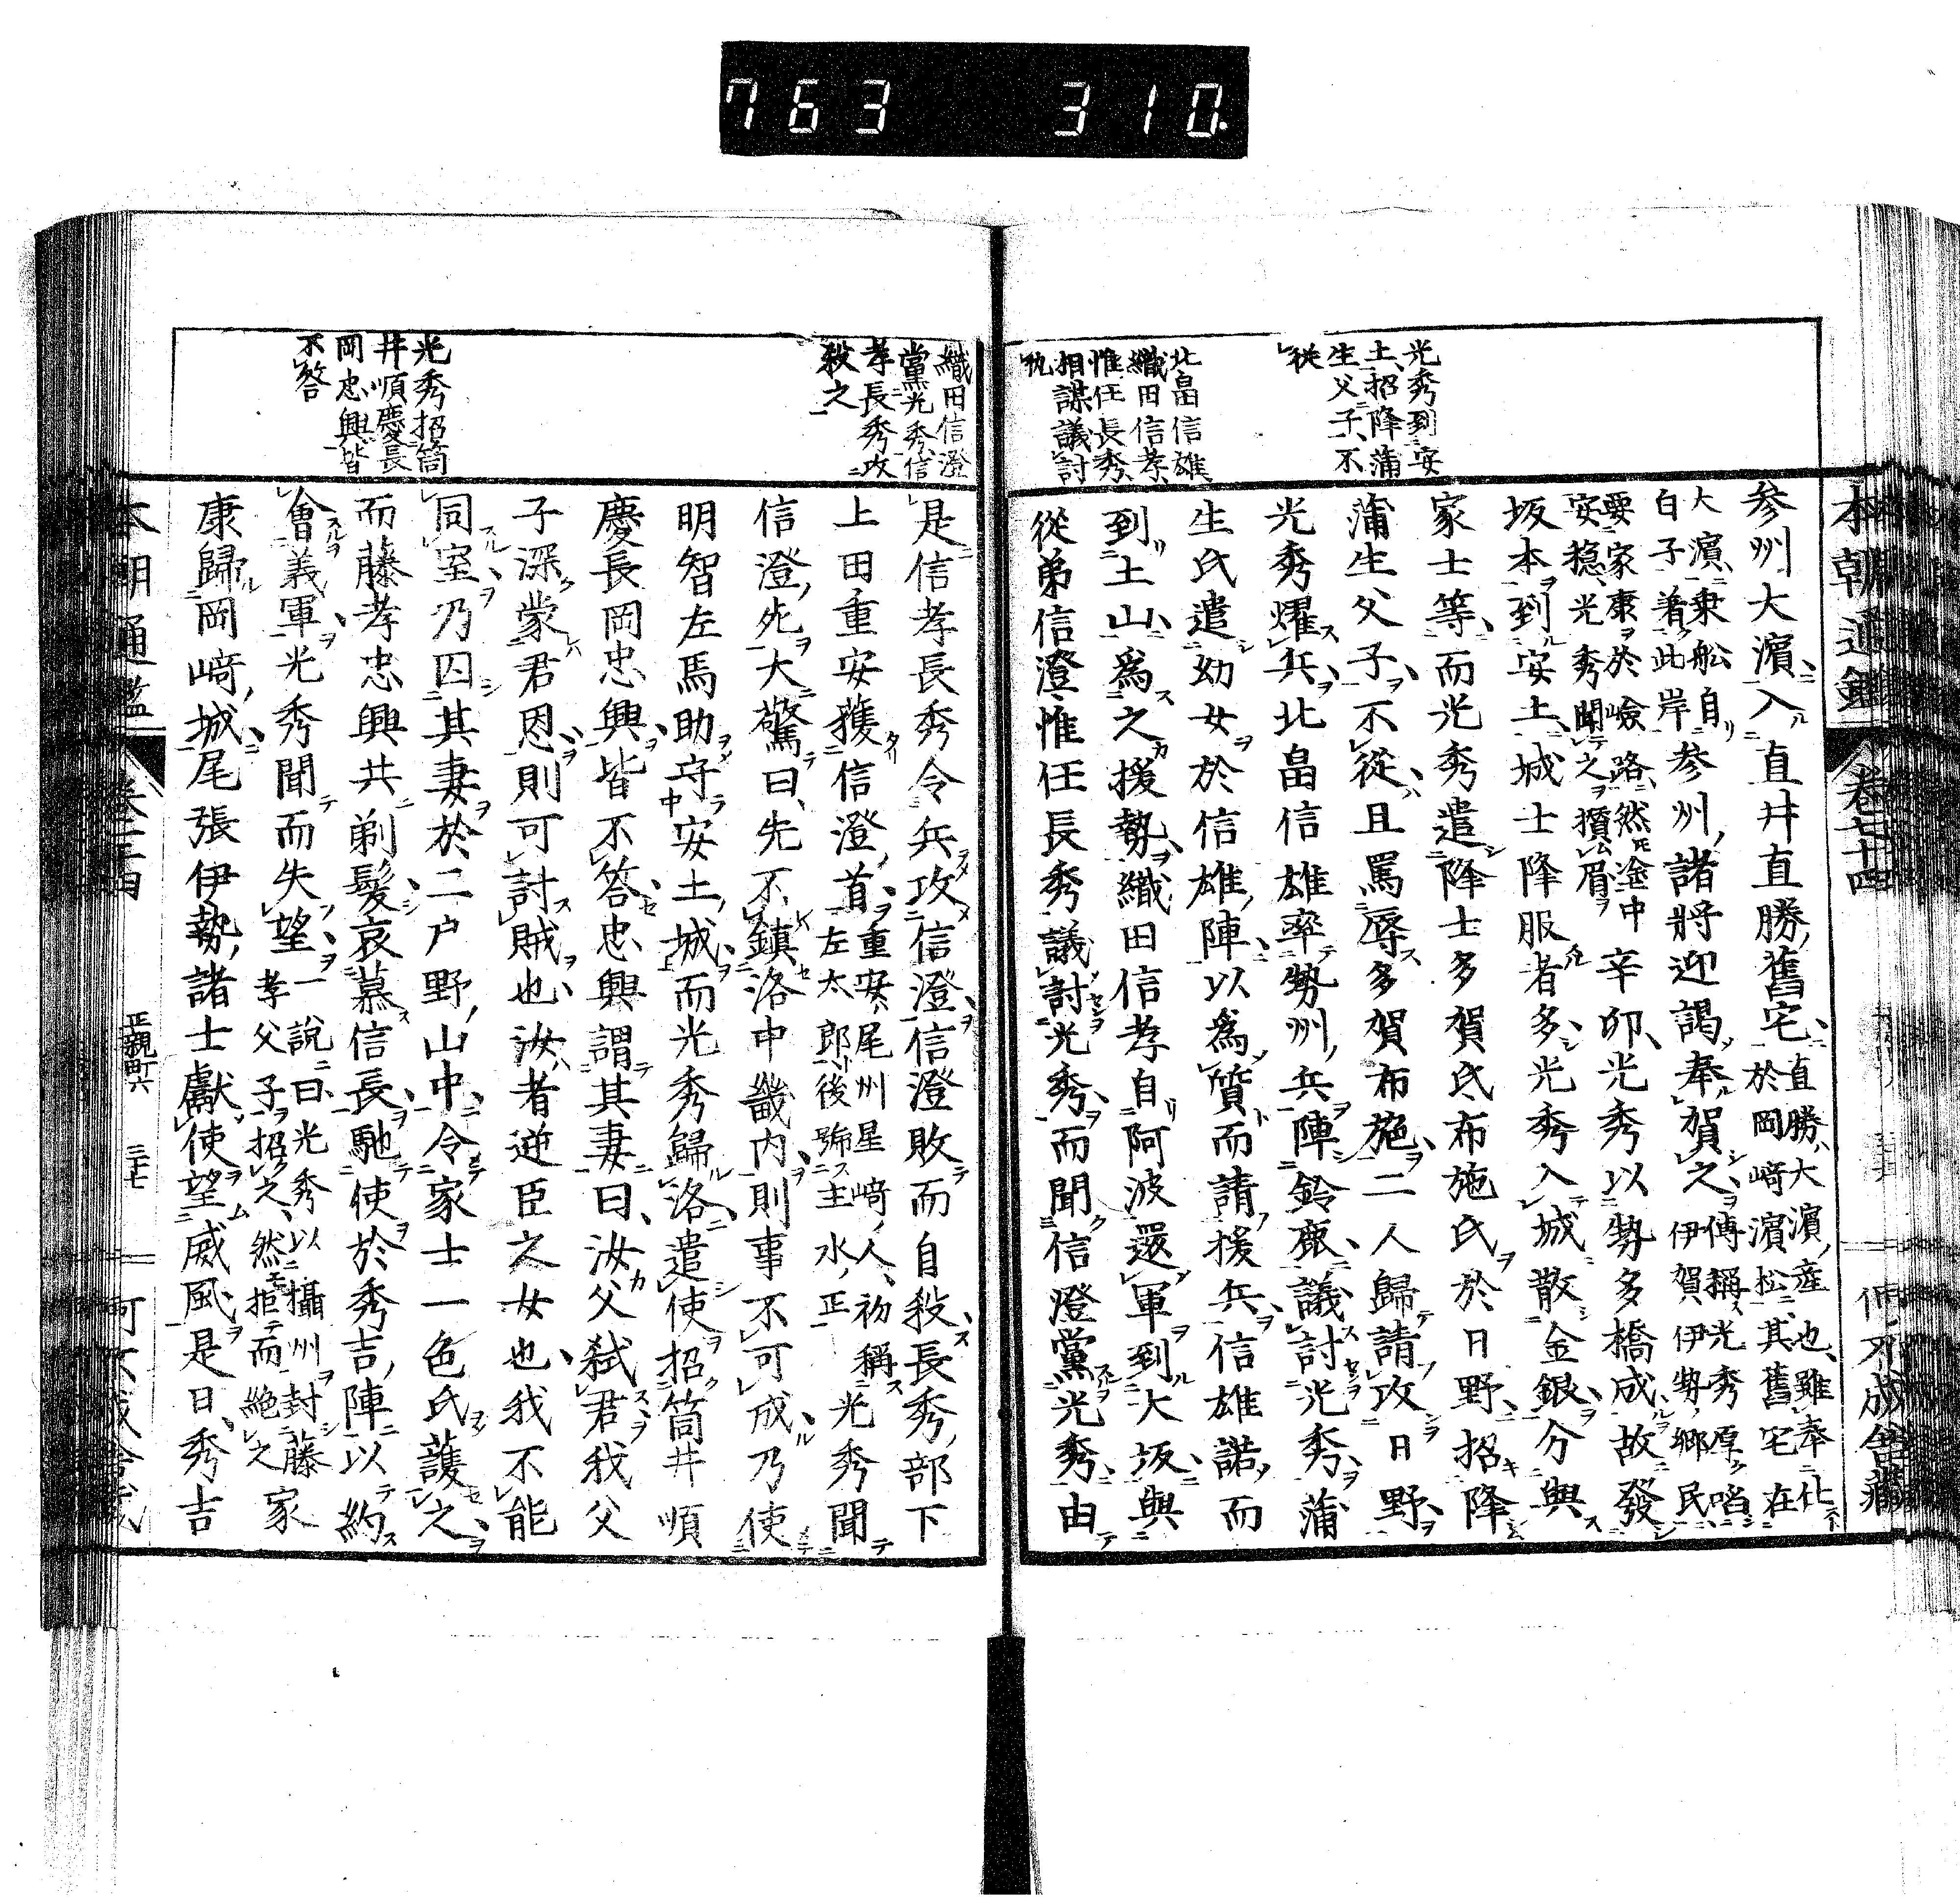 763 310.
本朝通鑑 卷七十四
光秀到安
土招降蒲
生父子不
從
北畠信雄
織田信孝
惟任長秀
相謀議討
参州大濱入直井直勝舊宅直勝大濱産也雖奉仕
於岡﨑濱松其舊宅在
大濱乗舩自
白子着此岸参州諸將迎謁奉賀之傳稱光秀厚啗
伊賀伊勢郷民
要家康於嶮路然途中
安穏光秀聞之攢眉辛卯光秀以勢多橋成故發
坂本到安土城士降服者多光秀入城散金銀分與
家士等而光秀遣降士多賀氏布施氏於日野招降
蒲生父子不從且罵辱多賀布施二人歸請攻日野
光秀燿兵北畠信雄率勢州兵陣鈴鹿議討光秀蒲
生氏遣幼女於信雄陣以爲質而請援兵信雄諾而
到土山爲之援勢織田信孝自阿波還軍到大坂與
從弟信澄惟任長秀議討光秀而聞信澄黨光秀由
織田信澄
黨光秀信
孝長秀攻
殺之
光秀招筒
井順慶長
岡忠興皆
不答
是信孝長秀令兵攻信澄信澄敗而自殺長秀部下
上田重安獲信澄首重安尾州星﨑人初稱
左太郎後號主水正光秀聞
信澄死大驚曰先不鎮洛中畿内則事不可成乃使
明智左馬助守安土城而光秀歸洛遣使招筒井順
慶長岡忠興皆不答忠興謂其妻曰汝父弑君我父
子深蒙君恩則可討賊也汝者逆臣之女也我不能
同室乃囚其妻於二户野山中令家士一色氏護之
而藤孝忠興共剃髪哀慕信長馳使於秀吉陣以約
會義軍光秀聞而失望一説曰光秀以攝州封藤
孝父子招之然拒而絶之家
康歸岡﨑城尾張伊勢諸士獻使望威風是日秀吉
本朝通鑑
正親町六 三十七